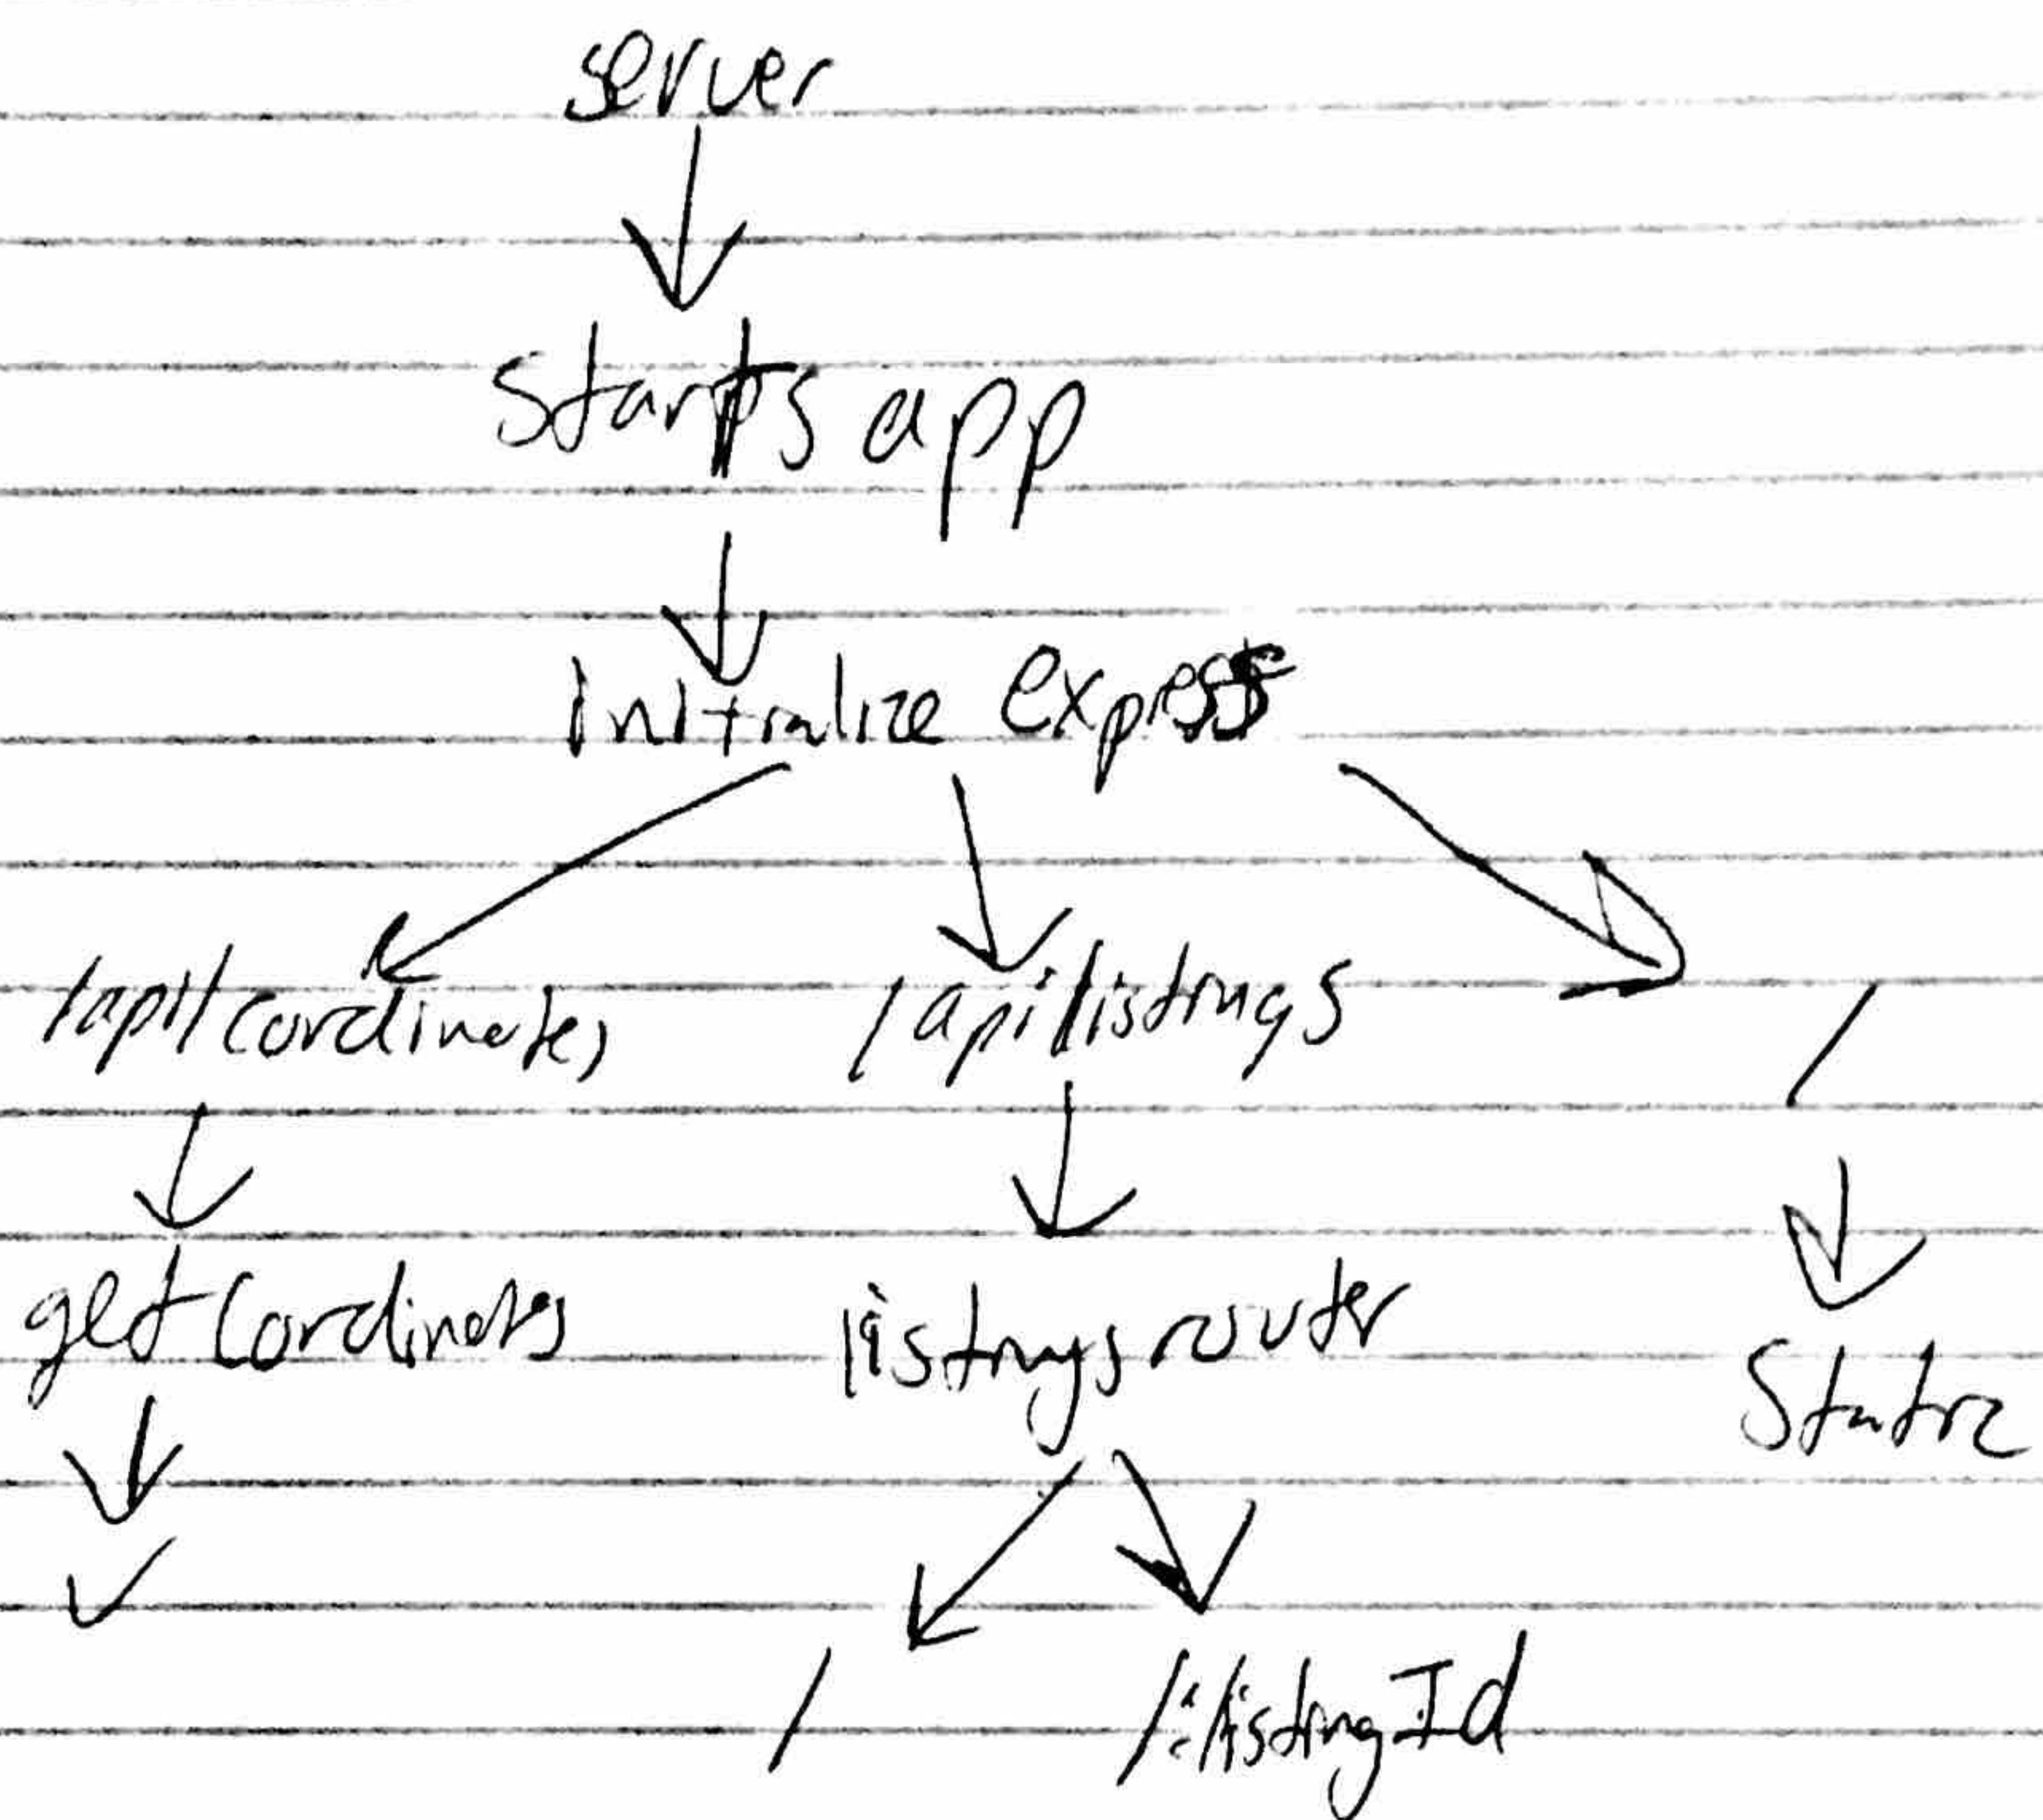 server
starts app
initialize express
/api/cordinates /api/listings /
getCordinates listingsrouter
Static
/ /:listingId